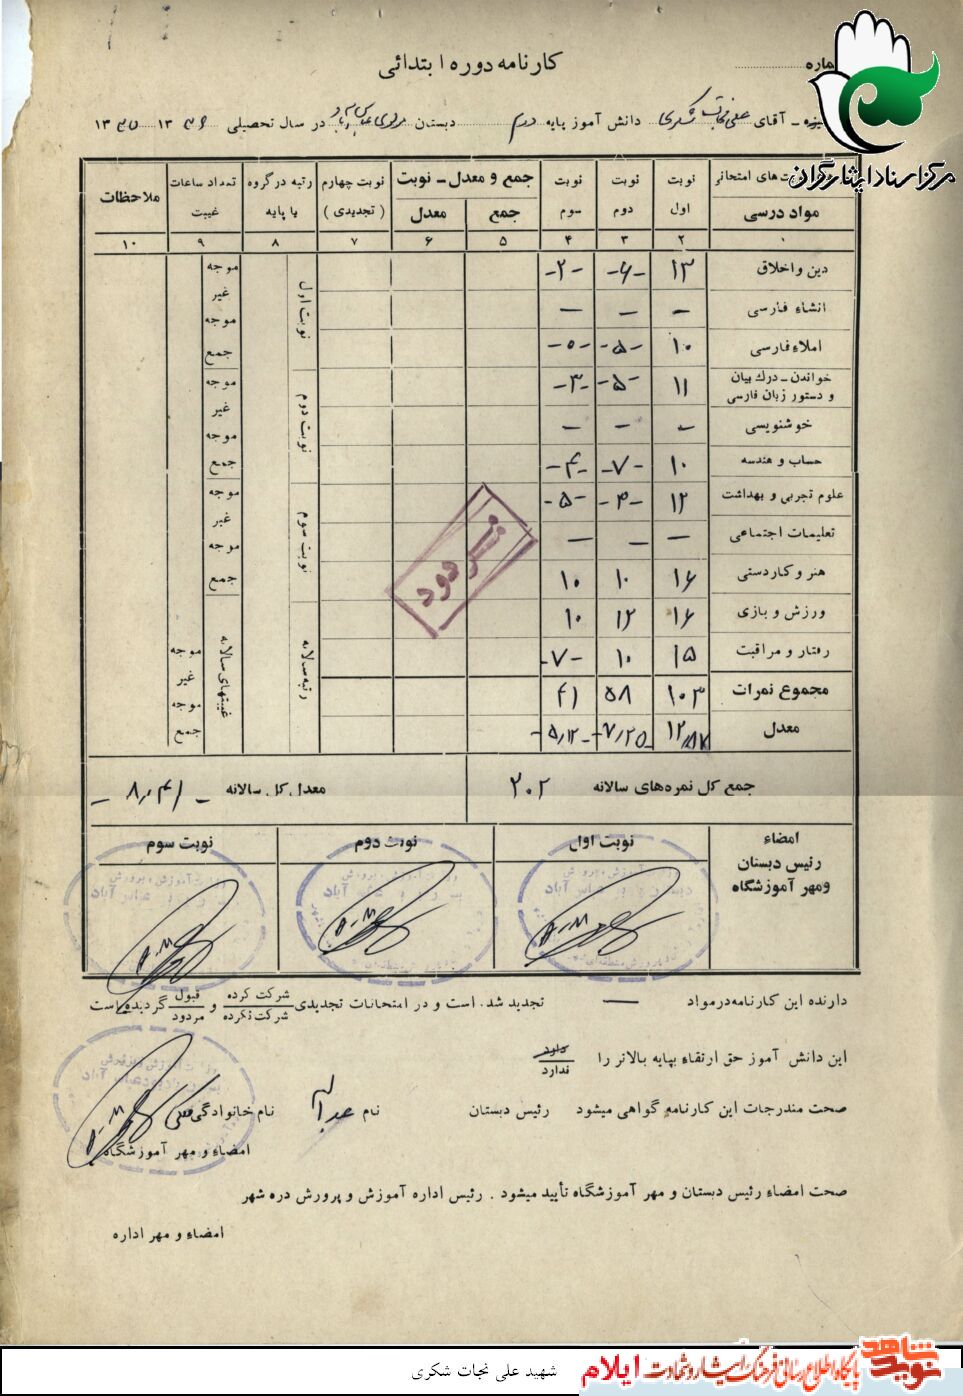 کارنامه دوره ابتدائی
ماره
مرکز اسناد ایثارگران
آقای علی نجات شکری دانش آموز پایه دوم دبستان عباس آباد در سال تحصیلی ۱۳۳۶ ۱۳۳۵
مواد درسی
نوبت اول
نوبت دوم
نوبت سوم
جمع و معدل - نوبت
جمع
معدل
نوبت چهارم (تجدیدی)
رتبه در گروه یا پایه
تعداد ساعات غیبت
ملاحظات
۱ ۲ ۳ ۴ ۵ ۶ ۷ ۸ ۹ ۱۰
دین و اخلاق ۱۳ -۶- -۲-
انشاء فارسی - - -
املاء فارسی ۱۰ -۵- -۵-
خواندن - درك بیان و دستور زبان فارسی ۱۱ -۵- -۳-
خوشنویسی - - -
حساب و هندسه ۱۰ -۷- -۴-
علوم تجربی و بهداشت ۱۲ -۳- -۵-
تعلیمات اجتماعی - - -
هنر و کاردستی ۱۶ ۱۰ ۱۰
ورزش و بازی ۱۶ ۱۲ ۱۰
رفتار و مراقبت ۱۵ ۱۰ -۷-
مجموع نمرات ۱۰۳ ۵۸ ۴۱
معدل ۱۲/۸۷ -۷/۲۵- -۵/۱۲-
نوبت اول
نوبت دوم
نوبت سوم
رتبه سالانه
موجه
غیر موجه
جمع
موجه
غیر موجه
جمع
موجه
غیر موجه
جمع
غیبتهای سالانه
موجه
غیر موجه
جمع
مردود
جمع کل نمره‌های سالانه ۲۰۲ معدل کل سالانه - ۸/۴۱ -
امضاء رئیس دبستان و مهر آموزشگاه
نوبت اول
نوبت دوم
نوبت سوم
دارنده این کارنامه در مواد — تجدید شده است و در امتحانات تجدیدی شرکت کرده شرکت نکرده و قبول مردود گردیده است
این دانش آموز حق ارتقاء بپایه بالاتر را دارد ندارد
صحت مندرجات این کارنامه گواهی میشود رئیس دبستان نام نام خانوادگی
امضاء و مهر آموزشگاه
صحت امضاء رئیس دبستان و مهر آموزشگاه تأیید میشود . رئیس اداره آموزش و پرورش دره شهر
امضاء و مهر اداره
شهید علی نجات شکری
نوید شاهد پایگاه اطلاع رسانی فرهنگ ایثار و شهادت ایلام